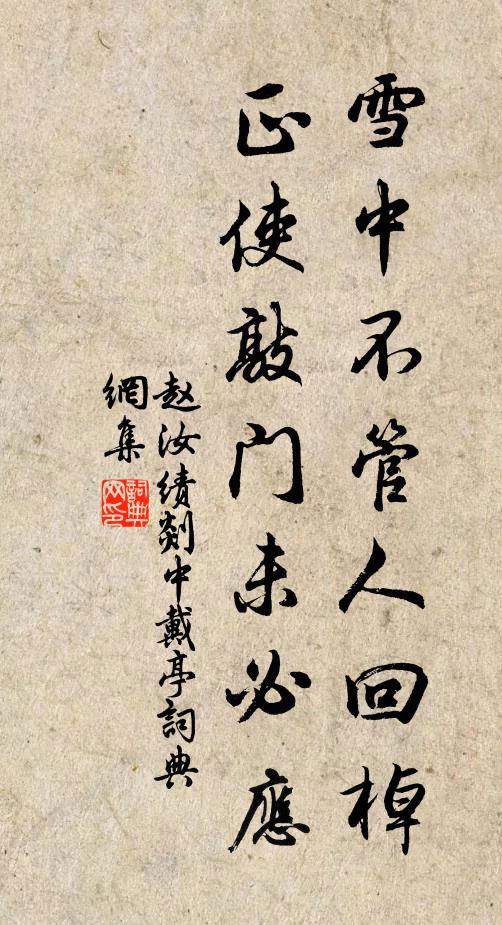 雪中不管人回棹
正使敲门未必應
赵汝績剡中戴亭詞典
網集
詞典
网印